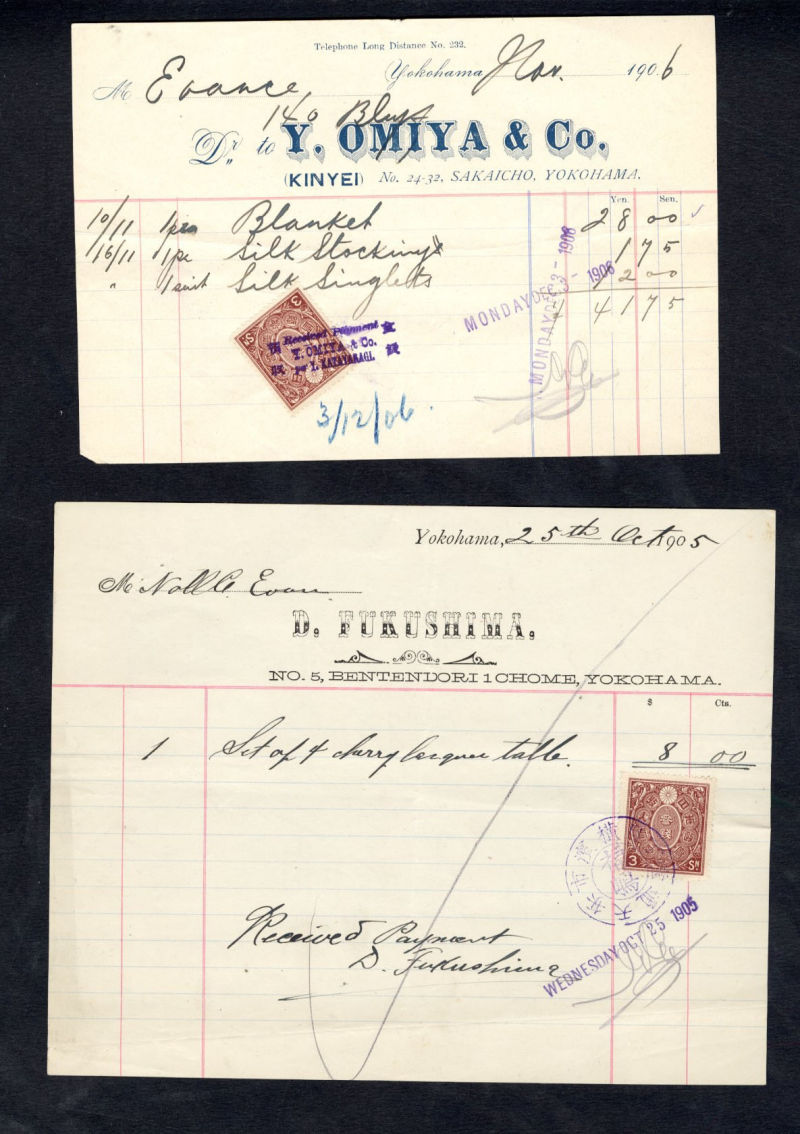 Telephone Long Distance No. 232.
Yokohama Nov. 1906
M Evance
140 Bluff
Dr. to Y. OMIYA & Co.
(KINYEI) No. 24-32, SAKAICHO, YOKOHAMA.
Yen. Sen.
10/11 1 pr Blanket 28 00
16/11 1 pr Silk Stockings 1 75
" 1 suit Silk Singlets 12 00
41 75
MONDAY DEC 3 - 1906
MONDAY DEC 3 - 1906
3 Sn
Received Payment
Y. OMIYA & Co.
per Y. KATAYANAGI.
3/12/06.
Yokohama, 25th Oct 1905
M Nall & Evan
D. FUKUSHIMA.
NO. 5, BENTENDORI 1 CHOME, YOKOHAMA.
$ Cts.
1 Set of 4 cherry lacquer table. 8 00
3 Sn
Received Payment
D. Fukushima
WEDNESDAY OCT 25 1905